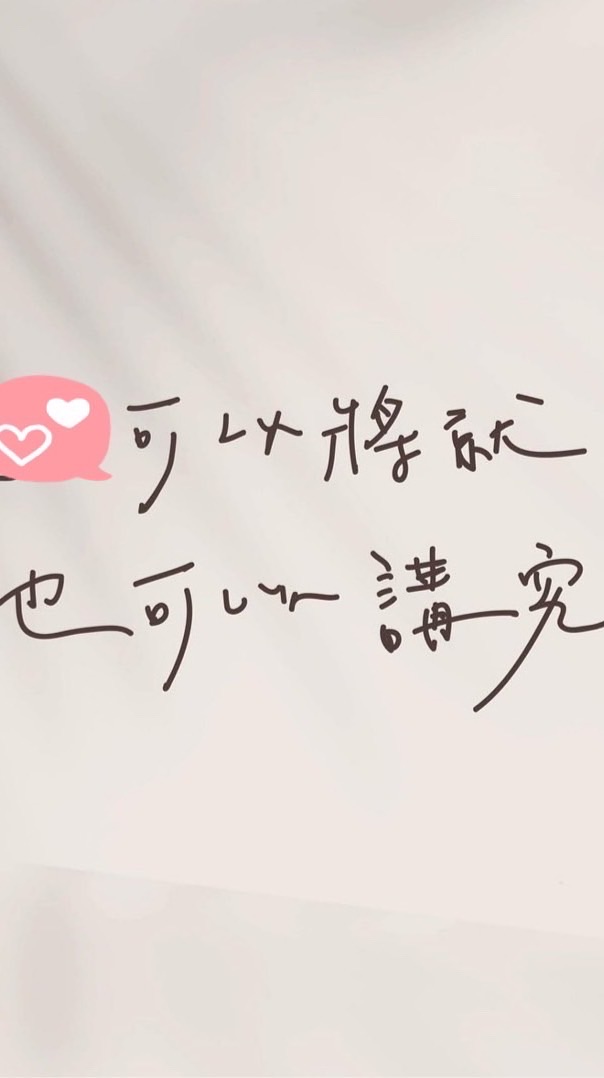 可以將就
也可以講究